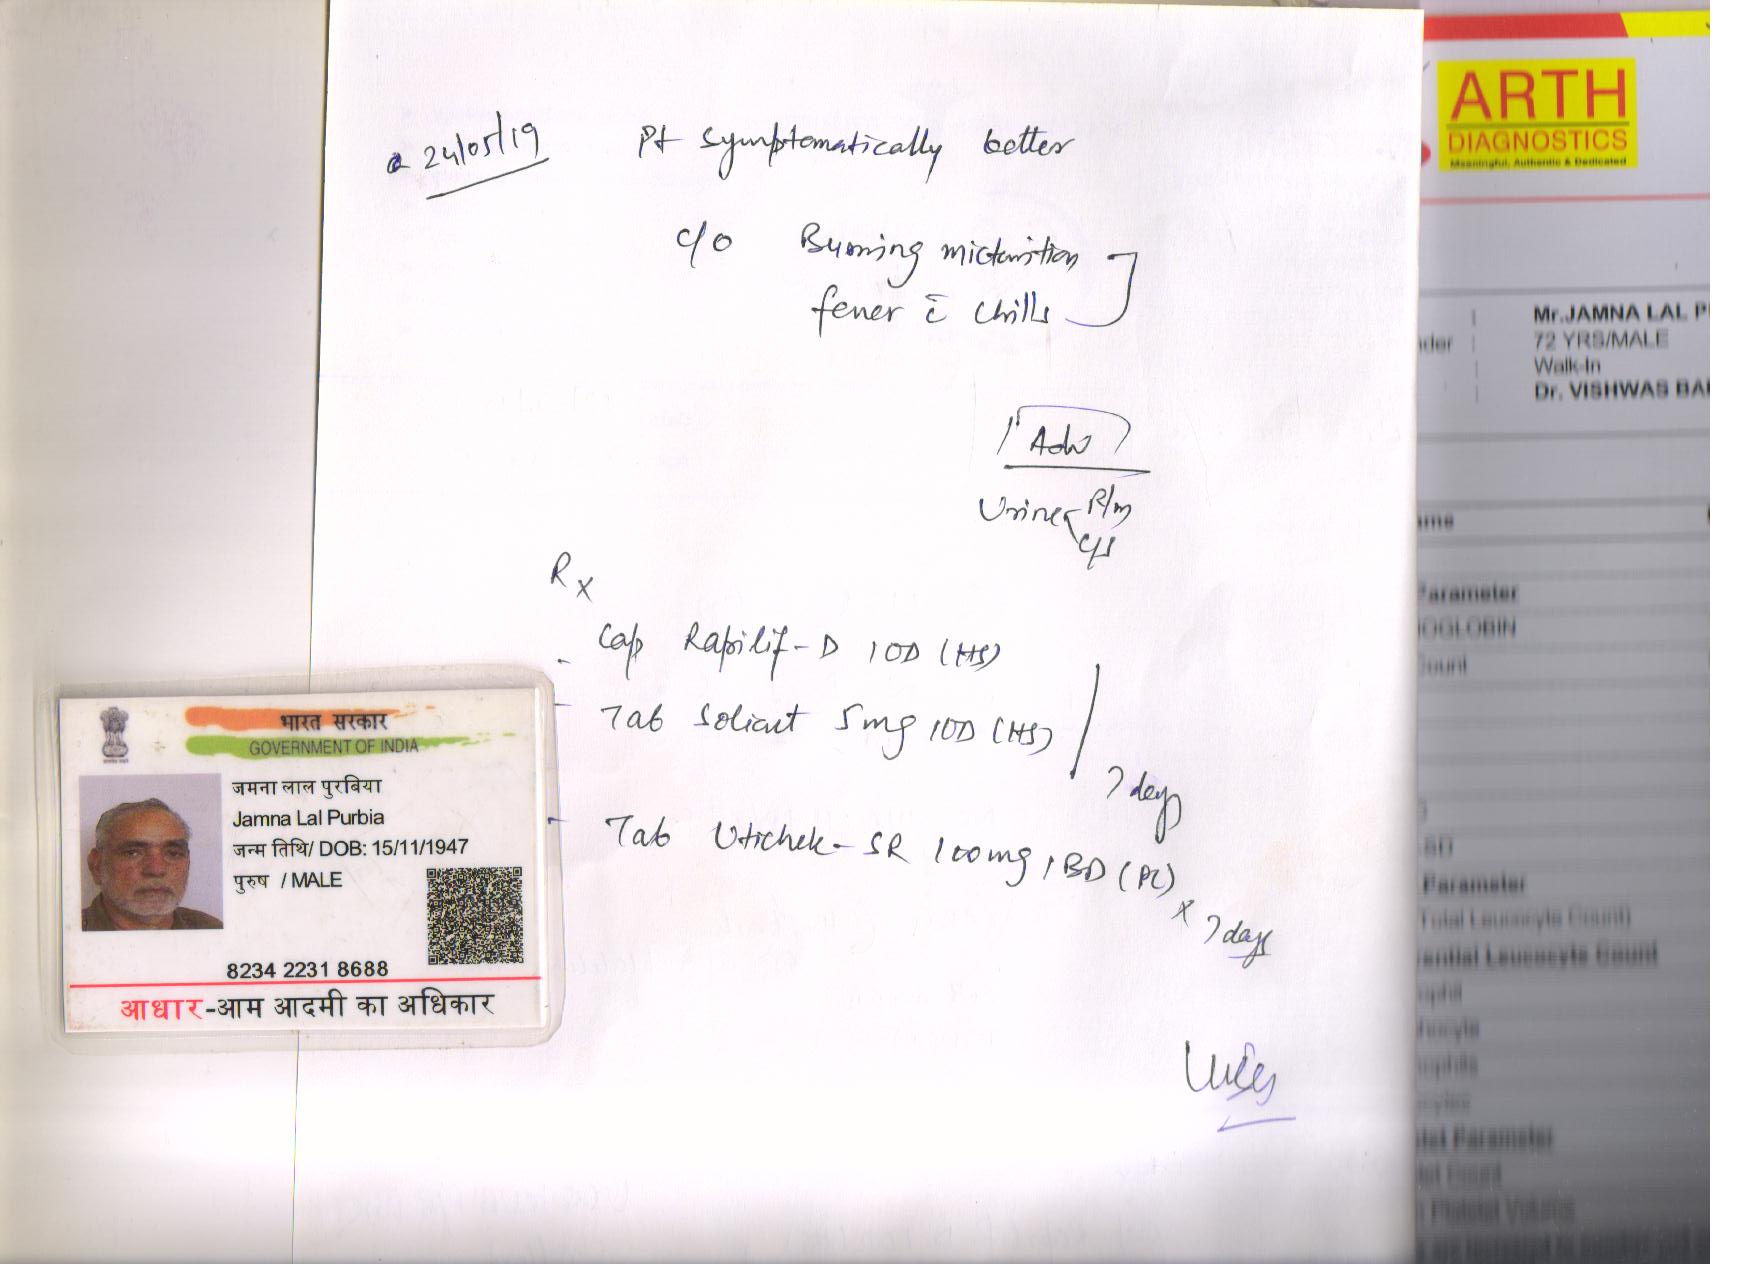 24/05/19 Pt symptomatically better
c/o Burning micturition
fever c̄ chills
Adv
Urine R/m
c/s
Rx
Cap Rapilif-D 1OD (HS)
Tab Solicut 5mg 1OD (HS)
7 days
Tab Utichek-SR 100mg 1BD (PC)
x 7 days
भारत सरकार
GOVERNMENT OF INDIA
जमना लाल पुरबिया
Jamna Lal Purbia
जन्म तिथि/ DOB: 15/11/1947
पुरुष / MALE
8234 2231 8688
आधार-आम आदमी का अधिकार
ARTH
DIAGNOSTICS
Meaningful, Authentic & Dedicated
Mr.JAMNA LAL P
72 YRS/MALE
Walk-In
Dr. VISHWAS BA
Parameter
OGLOBIN
ount
Parameter
Total Leucocyte Count)
ential Leucocyte Count
ophil
Parameter